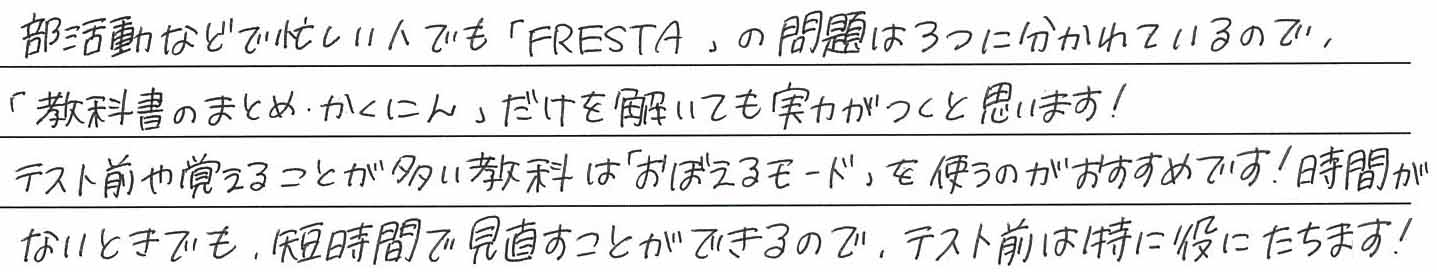 部活動などで忙しい人でも「FRESTA」の問題は3つに分かれているので、
「教科書のまとめ・かくにん」だけを解いても実力がつくと思います!
テスト前や覚えることが多い教科は「おぼえるモード」を使うのがおすすめです!時間が
ないときでも、短時間で見直すことができるので、テスト前は特に役にたちます!